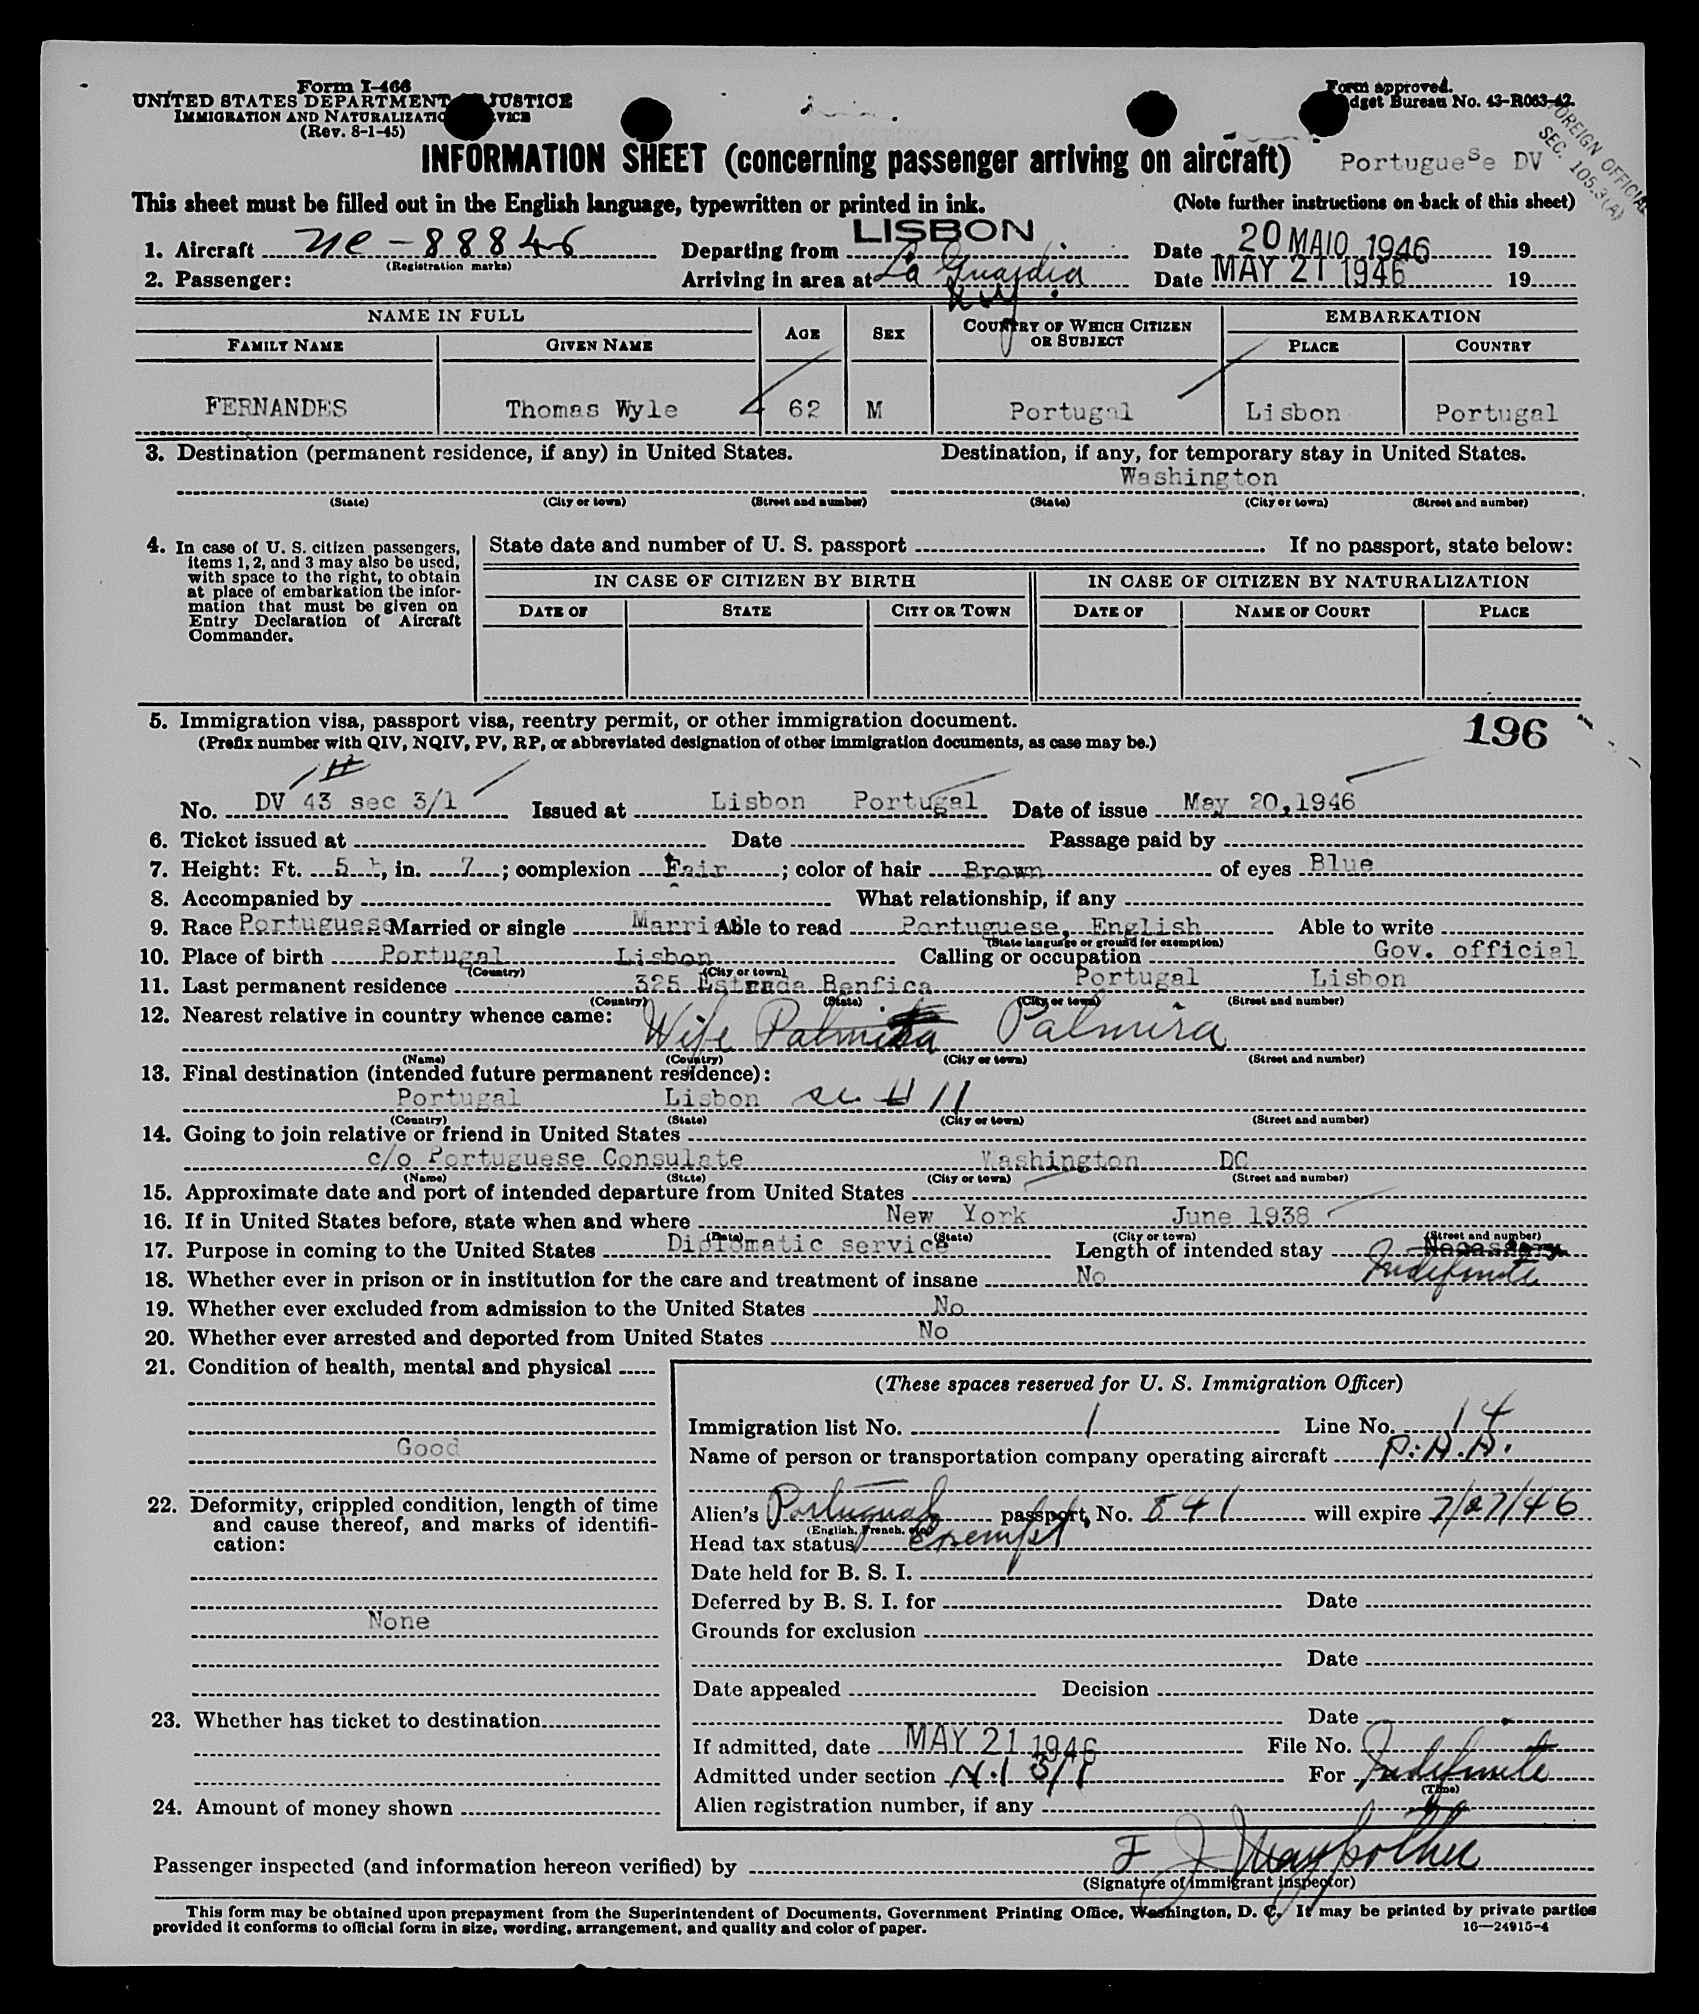 Form I-466
UNITED STATES DEPARTMENT JUSTICE
IMMIGRATION AND NATURALIZATION
(Rev. 8-1-45)
Form approved.
Budget Bureau No. 43-R063-42.
FOREIGN OFFICIAL
SEC. 105.3(A)
INFORMATION SHEET (concerning passenger arriving on aircraft) Portuguese DV
This sheet must be filled out in the English language, typewritten or printed in ink. (Note further instructions on back of this sheet)
1. Aircraft NC-88846 Departing from LISBON Date 20 MAIO 1946 19
(Registration marks)
2. Passenger: Arriving in area at La Guardia Date MAY 21 1946 19
NY
NAME IN FULL AGE SEX COUNTRY OF WHICH CITIZEN OR SUBJECT EMBARKATION
FAMILY NAME GIVEN NAME PLACE COUNTRY
FERNANDES Thomas Wyle 62 M Portugal Lisbon Portugal
3. Destination (permanent residence, if any) in United States. Destination, if any, for temporary stay in United States.
Washington
(State) (City or town) (Street and number) (State) (City or town) (Street and number)
4. In case of U. S. citizen passengers, items 1, 2, and 3 may also be used, with space to the right, to obtain at place of embarkation the information that must be given on Entry Declaration of Aircraft Commander.
State date and number of U. S. passport . If no passport, state below:
IN CASE OF CITIZEN BY BIRTH IN CASE OF CITIZEN BY NATURALIZATION
DATE OF STATE CITY OR TOWN DATE OF NAME OF COURT PLACE
5. Immigration visa, passport visa, reentry permit, or other immigration document. 196
(Prefix number with QIV, NQIV, PV, RP, or abbreviated designation of other immigration documents, as case may be.)
No. DV 43 sec 3/1 Issued at Lisbon Portugal Date of issue May 20,1946
6. Ticket issued at Date Passage paid by
7. Height: Ft. 5, in. 7; complexion Fair; color of hair Brown of eyes Blue
8. Accompanied by What relationship, if any
9. Race Portuguese Married or single Married Able to read Portuguese, English Able to write
(State language or ground for exemption)
10. Place of birth Portugal Lisbon Calling or occupation Gov. official
(Country) (City or town)
11. Last permanent residence 325 Estrada Benfica Portugal Lisbon
(Country) (State) (City or town) (Street and number)
12. Nearest relative in country whence came: Wife Palmira
(Name) (Country) (City or town) (Street and number)
13. Final destination (intended future permanent residence):
Portugal Lisbon 11
(Country) (State) (City or town) (Street and number)
14. Going to join relative or friend in United States
c/o Portuguese Consulate Washington DC
(Name) (State) (City or town) (Street and number)
15. Approximate date and port of intended departure from United States
16. If in United States before, state when and where New York June 1938
(Date) (State) (City or town) (Street and number)
17. Purpose in coming to the United States Diplomatic service Length of intended stay Necessary Indefinite
18. Whether ever in prison or in institution for the care and treatment of insane No
19. Whether ever excluded from admission to the United States No
20. Whether ever arrested and deported from United States No
21. Condition of health, mental and physical
Good
22. Deformity, crippled condition, length of time and cause thereof, and marks of identification:
None
23. Whether has ticket to destination
24. Amount of money shown
(These spaces reserved for U. S. Immigration Officer)
Immigration list No. 1 Line No. 14
Name of person or transportation company operating aircraft P.A.A.
Alien's Portuguese passport, No. 841 will expire 7/27/46
(English, French, etc.)
Head tax status Exempt
Date held for B. S. I.
Deferred by B. S. I. for Date
Grounds for exclusion
Date
Date appealed Decision
Date
If admitted, date MAY 21 1946 File No.
Admitted under section 3/1 For Indefinite
(Time)
Alien registration number, if any
Passenger inspected (and information hereon verified) by F J
(Signature of immigrant inspector)
This form may be obtained upon prepayment from the Superintendent of Documents, Government Printing Office, Washington, D. C. It may be printed by private parties
provided it conforms to official form in size, wording, arrangement, and quality and color of paper. 16—24915-4